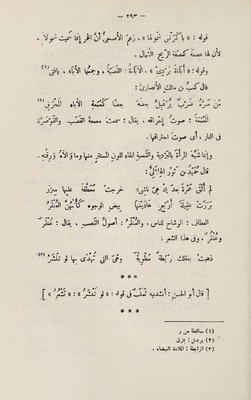 — ٢٩٣ —
قوله : « باكَرَتْنِي شَمُولها » . زعم الأصمعيُّ أنَّ الخمر إنما سُمِّيت شمولا
لأن لها عصفة كعصفة الريح الشَّمال .
وقوله : « أباءةُ بَرْدِيّ » . الأباءة : القَصَبة ، وجمعها الأباء .
قال كعب بن مالك الأنصاريّ :
مَن سَرَّه ضَرْبٌ يُرَعْبِلُ بعضُه بعضًا كمَعْمَعةِ الأباءِ المُحْرَقِ (٢)
المَعْمَعة : صوتُ إحراقه . يقال : سمعت معمعة القصَب والقَوْصَرَّة
في النار ، أى صوتَ احتراقها .
وإنما شبَّه المرأةَ بالبَرْديّة والقصبةِ لنقاء اللون المستتر منها وما والاه ورِقَّتِه .
قال حُميد بن ثَور الهلاليُّ :
لم ألقَ عَمْرةَ بعدَ إذ هى ناشئٌ خرجتْ مُعَطَّفةً عليها مِئزرُ
بَرَزتْ عقيلةَ أربعٍ هادَيْنَها بيضِ الوجوه كأنّهنّ العُنْقُرُ
العِطاف : الوِشاح للناس . والعُنقُر : أصولُ القصبِ . يقال : عُنْقُر
وعُنْقَر . وفى هذا الشعر :
ذهبتْ بعقلك رَيْطةٌ مَطْوِيّةٌ وهى التى تُهدَى بها لو تُنْشَرُ (٣)
* * *
[ قال أبو الحسن : أنشدنيه ثعلبٌ فى قوله : « لو تُنشَرُ » : « تَشْعُرُ » ]
* * *
(١) ساقطة من ر
(٣) الريطة : الملاءة البيضاء .